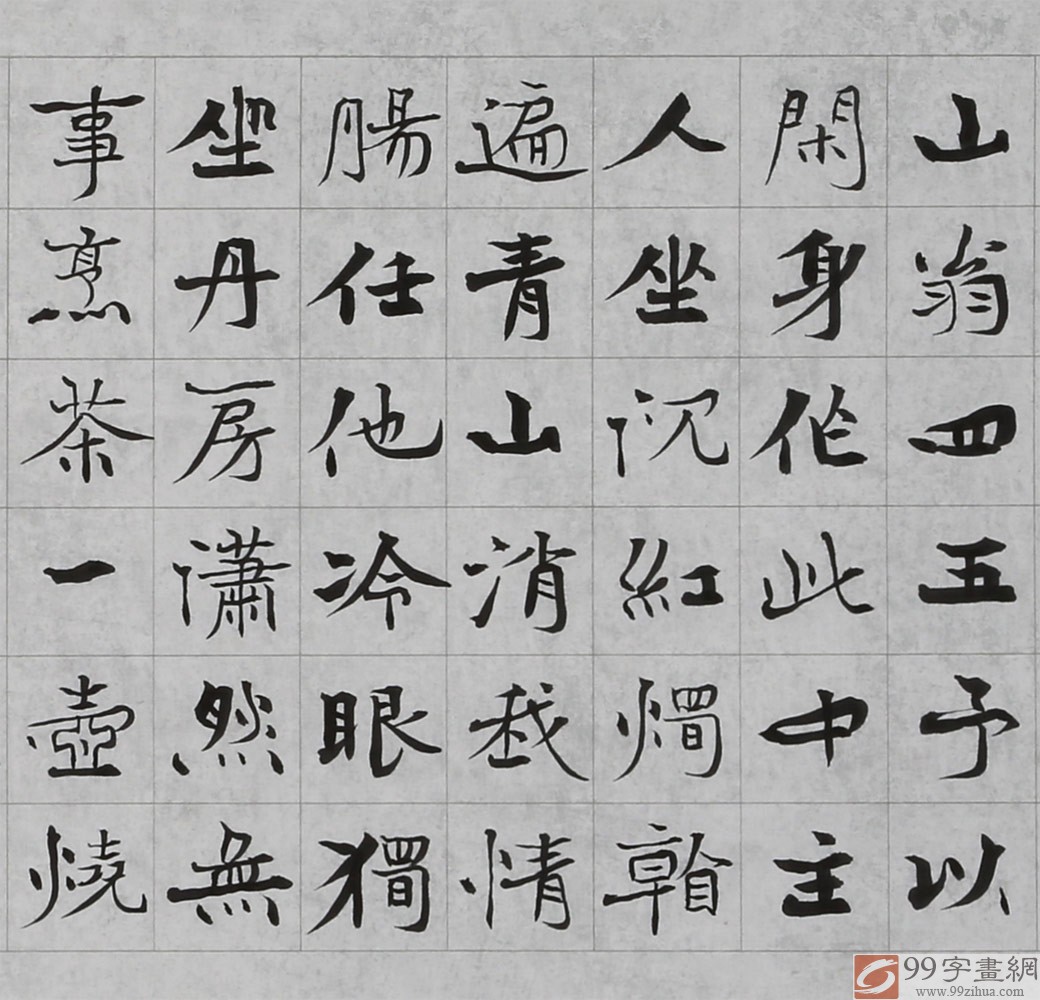 山翁四五予以
閑身作此中主
人坐沉紅燭看
遍青山消我情
腸任他冷眼獨
坐丹房瀟然無
事烹茶一壺燒
99字畫網
www.99zihua.com